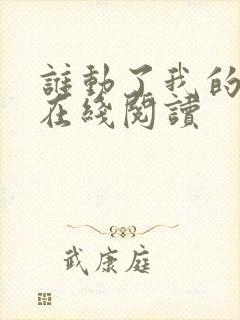 誰動了我的
在綫閱讀
武康庭